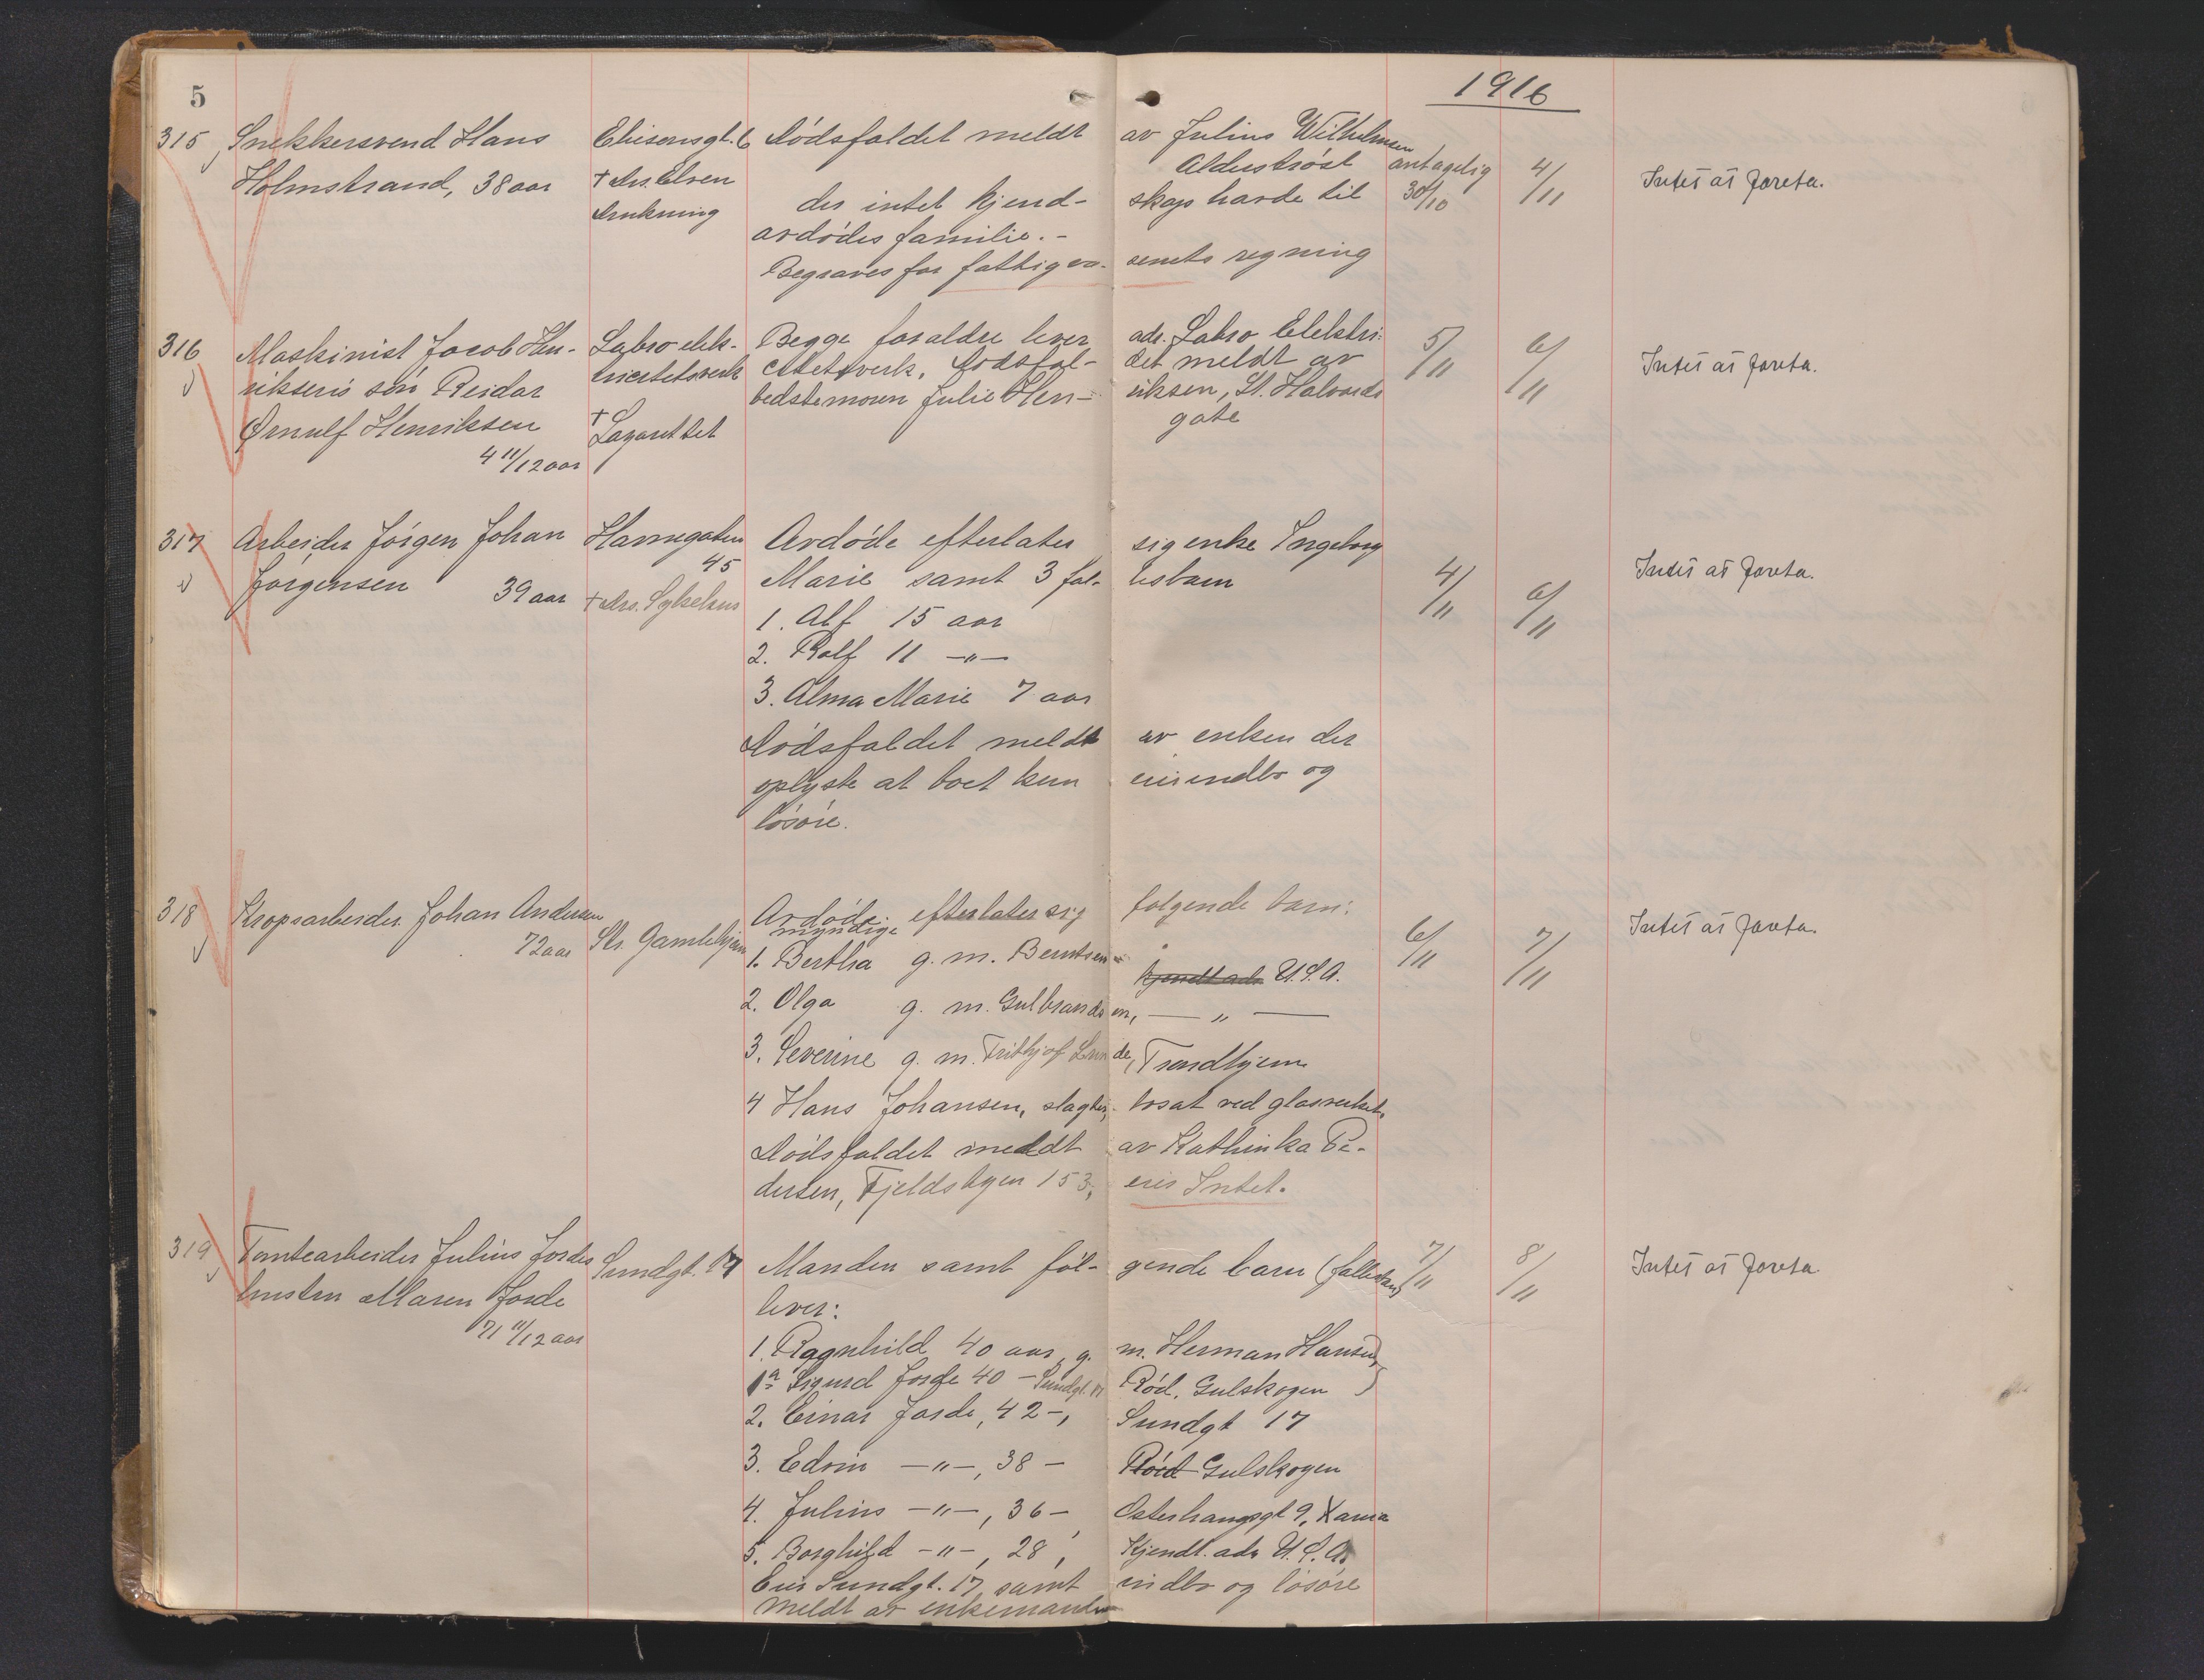 5
1916
315 Snekkersvend Hans
Holmstrand, 38 aar
Ehisensgt. 6
† drs. Elven
drukning
Dødsfaldet meldt av Julius Wilhelmsen
Alderstrøst
der intet kjend- skap havde til
avdødes familie. -
Begraves for fattigvæ- senets regning
antagelig
30/10
4/11
Intet at foreta.
316 Maskinist Jacob Hen-
riksens søn Reidar
Ørnulf Henriksen
4 11/12 aar
Labro elek-
tricitetsverk
†
Lazarettet
Begge foraldre lever adr. Labro Elektri-
citetsverk. Dødsfal- det meldt av
bedstemoren Julie Hen- riksen, St. Halvards
gate
5/11
6/11
Intet at foreta.
317 Arbeider Jørgen Johan
Jørgensen 39 aar
Havnegaten
45
† drs. Sykehus
Avdøde efterlater sig enke Ingeborg
Marie samt 3 fæl- lesbarn
1. Alf 15 aar
2. Rolf 11 -"-
3. Alma Marie 7 aar
Dødsfaldet meldt av enken der
oplyste at boet kun eier indbo og
løsøre.
4/11
6/11
Intet at foreta.
318 Kropsarbeider Johan Andersen
72 aar
Str. Gamlehjem
Avdøde efterlater sig følgende barn:
myndige
1. Bertha g. m. Berntsen - kjendt adr. U.S.A.
2. Olga g. m. Gulbrandsen, - " -
3. Severine g. m. Frithjof Lunde, Trondhjem
4 Hans Johansen, slagter, bosat ved glasverket.
Dødsfaldet meldt av Kathinka Pe-
dersen, Fjeldsbyen 153, eier Intet.
6/11
7/11
Intet at foreta.
319 Tomtearbeider Julius Jordes
hustru Maren Jorde
71 11/12 aar
Sundgt. 17
Manden samt føl- gende barn (fællesbarn)
lever:
1. Ragnhild 40 aar, g. m. Herman Hansen,
1a Sigurd Jorde 40 - Sundgt. 17 Rød, Gulskogen
2. Einar Jorde, 42 -, Sundgt 17
3. Edvin -"-, 38 - Rød Gulskogen
4. Julius -"-, 36 -, Osterhaugsgt 9, Xania
5. Borghild -"-, 28, Kjendt. adr U.S.A.
Eier Sundgt. 17, samt indbo og løsøre
Meldt av enkemanden
7/11
8/11
Intet at foreta